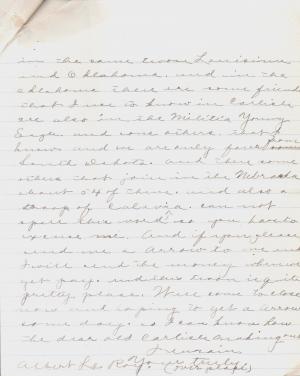 in the same town Louisiana
and Oklahoma. and in the
Oklahoma there are some friends
that I use to know in Carlisle
are also in the Militia Young
Eagle and some others, that I
know and we are only four from
South Dakota. and there some
others that join in the Nebraska
about 54 of them. and also a
troop of Calavia. can not
spell law word so you have to
excuse me. And if you please
send me a Arrow to me and
I will send the money whenever
yet pay. and this town is quite
pretty place. Well come to close
now and hoping to get a Arrow
some day. so I can know how
the dear old Carlisle making out
I remain
Yours truly
Albert Le Roy. (over please)